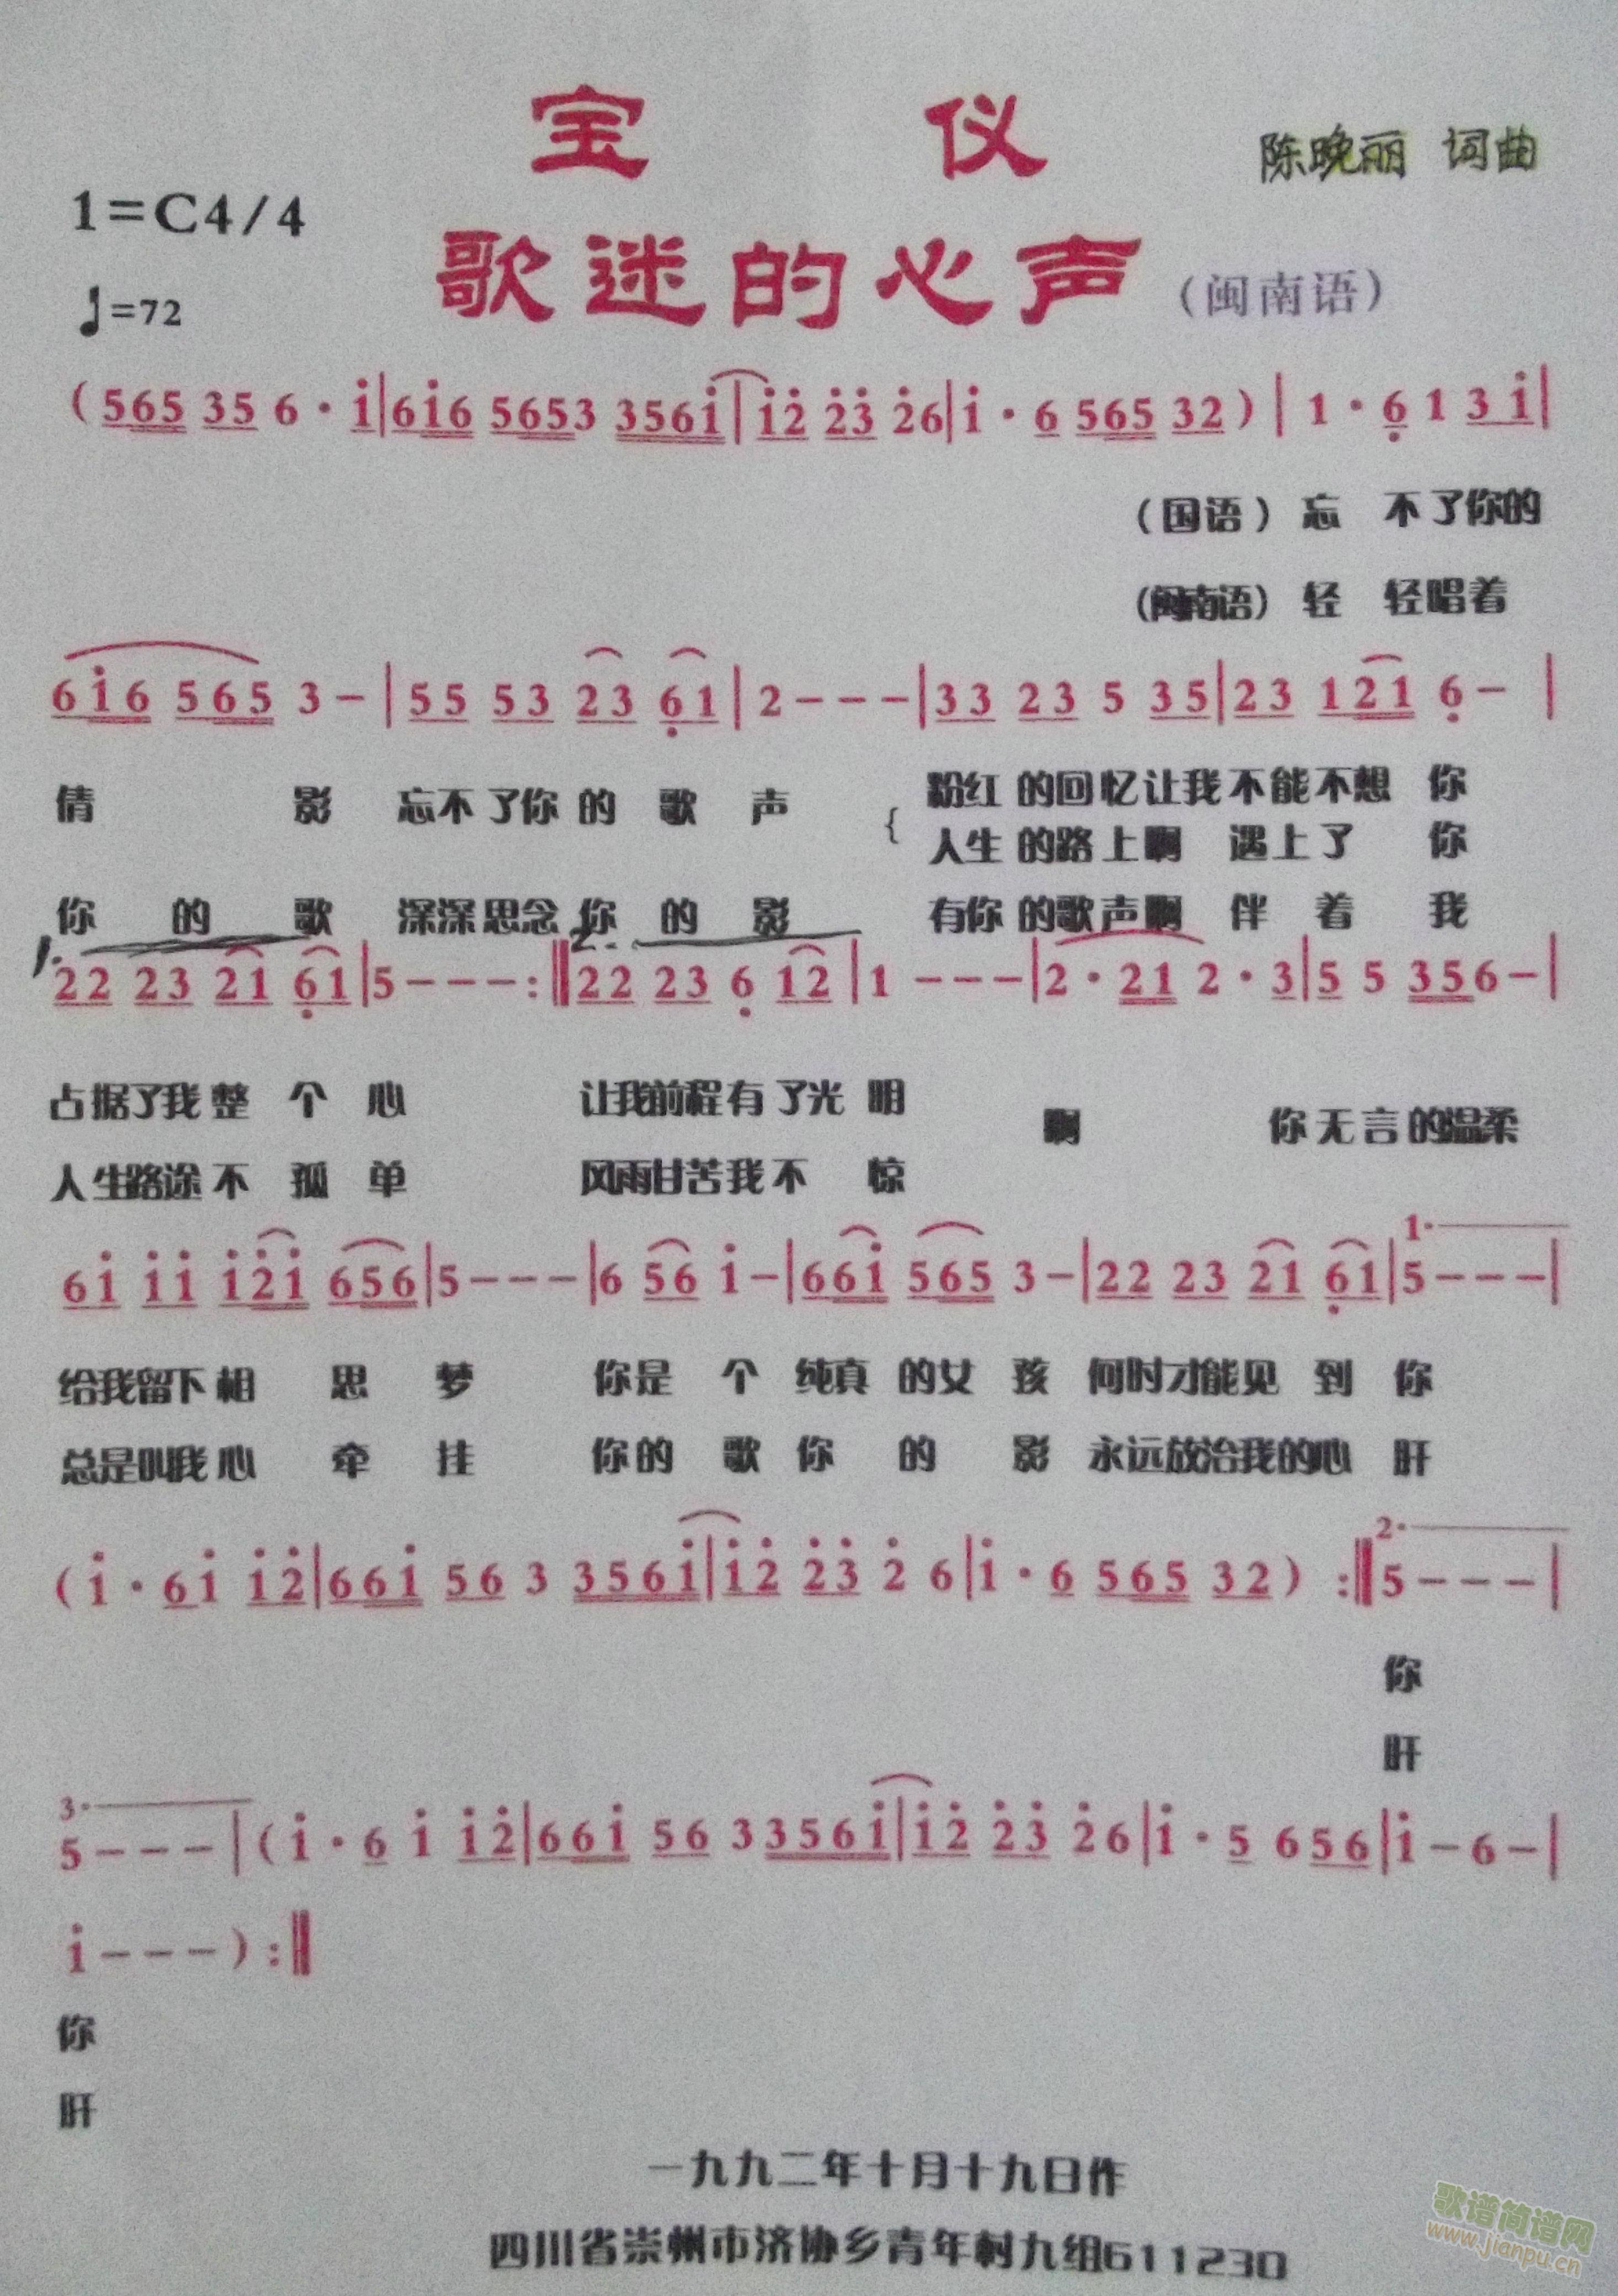 宝 仪
陈晚丽 词曲
1=C4/4
歌迷的心声（闽南语）
♩=72
（565 35 6·i|6i6 5653 356i|i2 23 26|i·6 565 32）|1·6 1 3 i|
（国语）忘 不了你的
（闽南语）轻 轻唱着
6i6 565 3－|55 53 23 61|2－－－|33 23 5 35|23 121 6－|
倩 影 忘不了你的歌声 { 粉红的回忆让我不能不想你
人生的路上啊 遇上了 你
你 的 歌 深深思念你的影 有你的歌声啊 伴着我
1.
2.
22 23 21 61|5－－－:‖22 23 6 12|1－－－|2·21 2·3|5 5 356－|
占据了我整个心 让我前程有了光明
啊 你无言的温柔
人生路途不孤单 风雨甘苦我不惊
1.
6i ii i2i 656|5－－－|6 56 i－|66i 565 3－|22 23 21 61|5－－－|
给我留下相思梦 你是个纯真的女孩 何时才能见到你
总是叫我心牵挂 你的歌你的影 永远放治我的心肝
2.
（i·6i i2|66i 56 3 356i|i2 23 2 6|i·6 565 32）:‖5－－－|
你
肝
3.
5－－－|（i·6 i i2|66i 56 3356i|i2 23 26|i·5 656|i－6－|
i－－－）:‖
你
肝
一九九二年十月十九日作
四川省崇州市济协乡青年村九组611230
歌谱简谱网
www.jianpu.cn